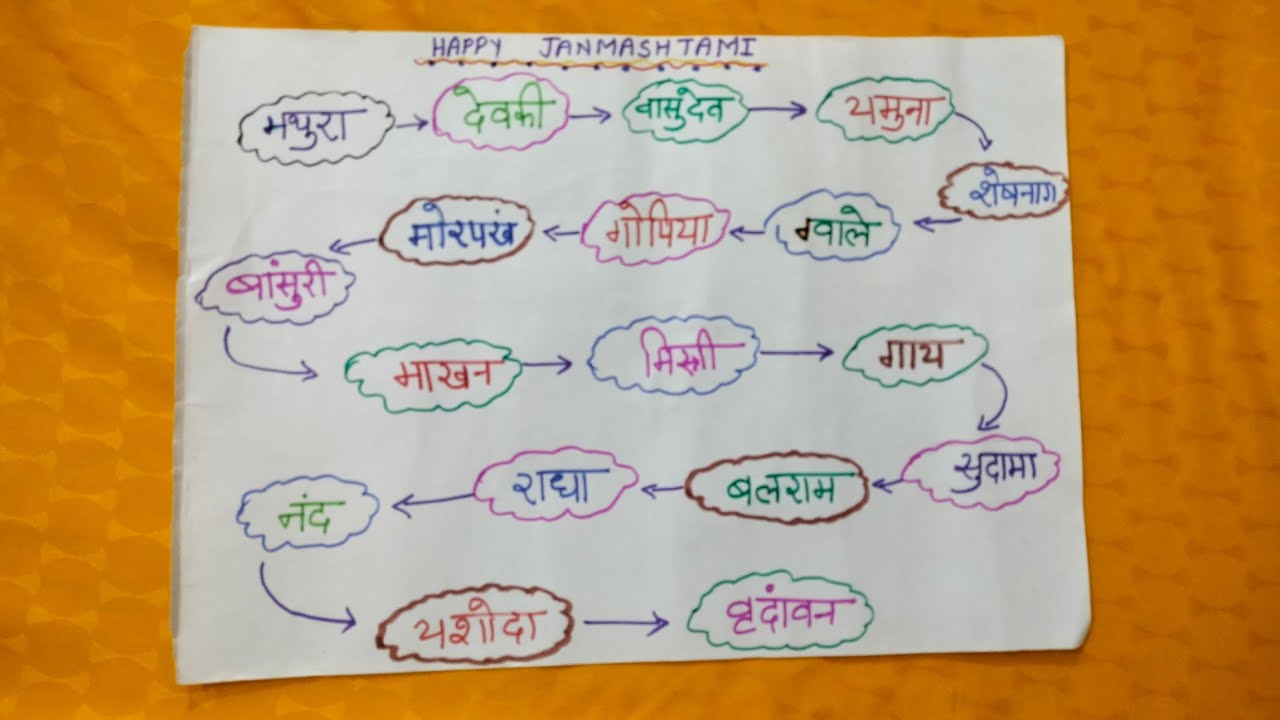 HAPPY JANMASHTAMI
मथुरा
देवकी
वासुंदेव
यमुना
शेषनाग
ग्वाले
गोपिया
मोरपखं
बांसुरी
माखन
मिस्री
गाय
सुदामा
बलराम
राधा
नंद
यशोदा
वृदांवन